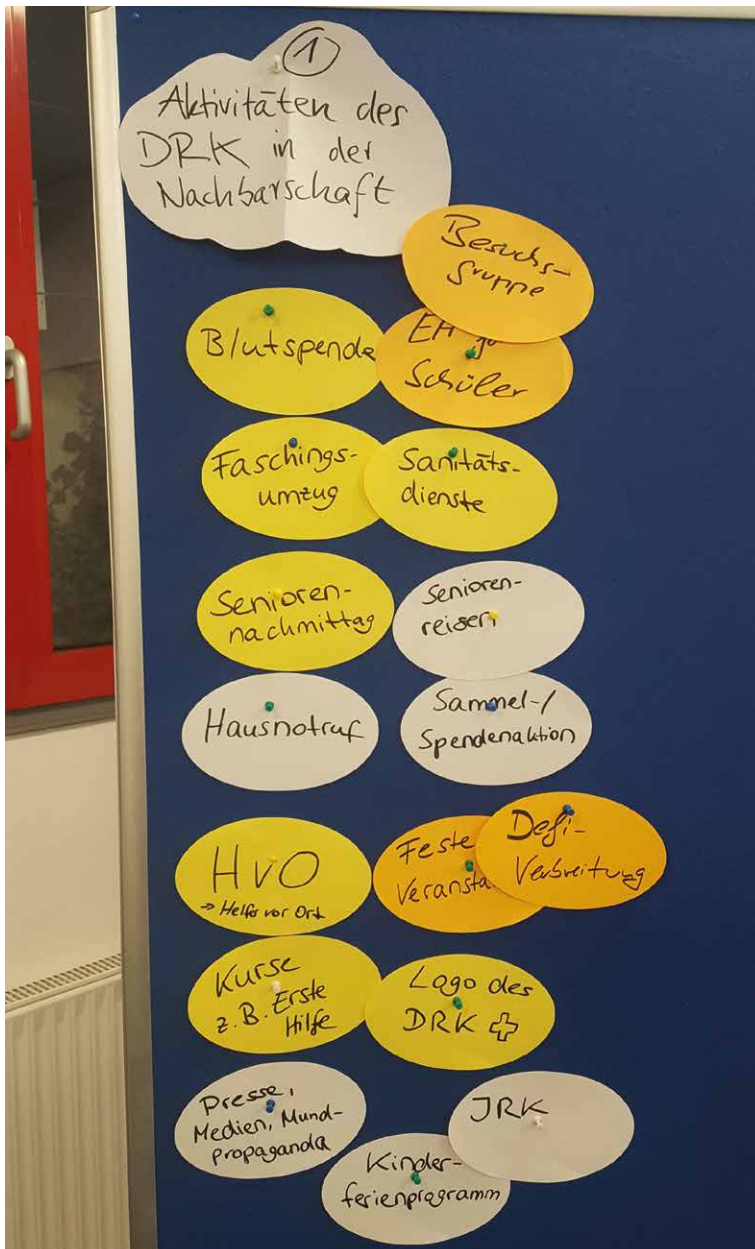 1
Aktivitäten des
DRK in der
Nachbarschaft
Besuchs-
gruppe
Blutspende
EH
Schüler
Faschings-
umzug
Sanitäts-
dienste
Senioren-
nachmittag
Senioren-
reisen
Hausnotruf
Sammel-/
Spendenaktion
HvO
→ Helfer vor Ort
Feste
Defi-
Verbreitung
Kurse
z.B. Erste
Hilfe
Logo des
DRK
Presse,
Medien, Mund-
propaganda
JRK
Kinder-
ferienprogramm